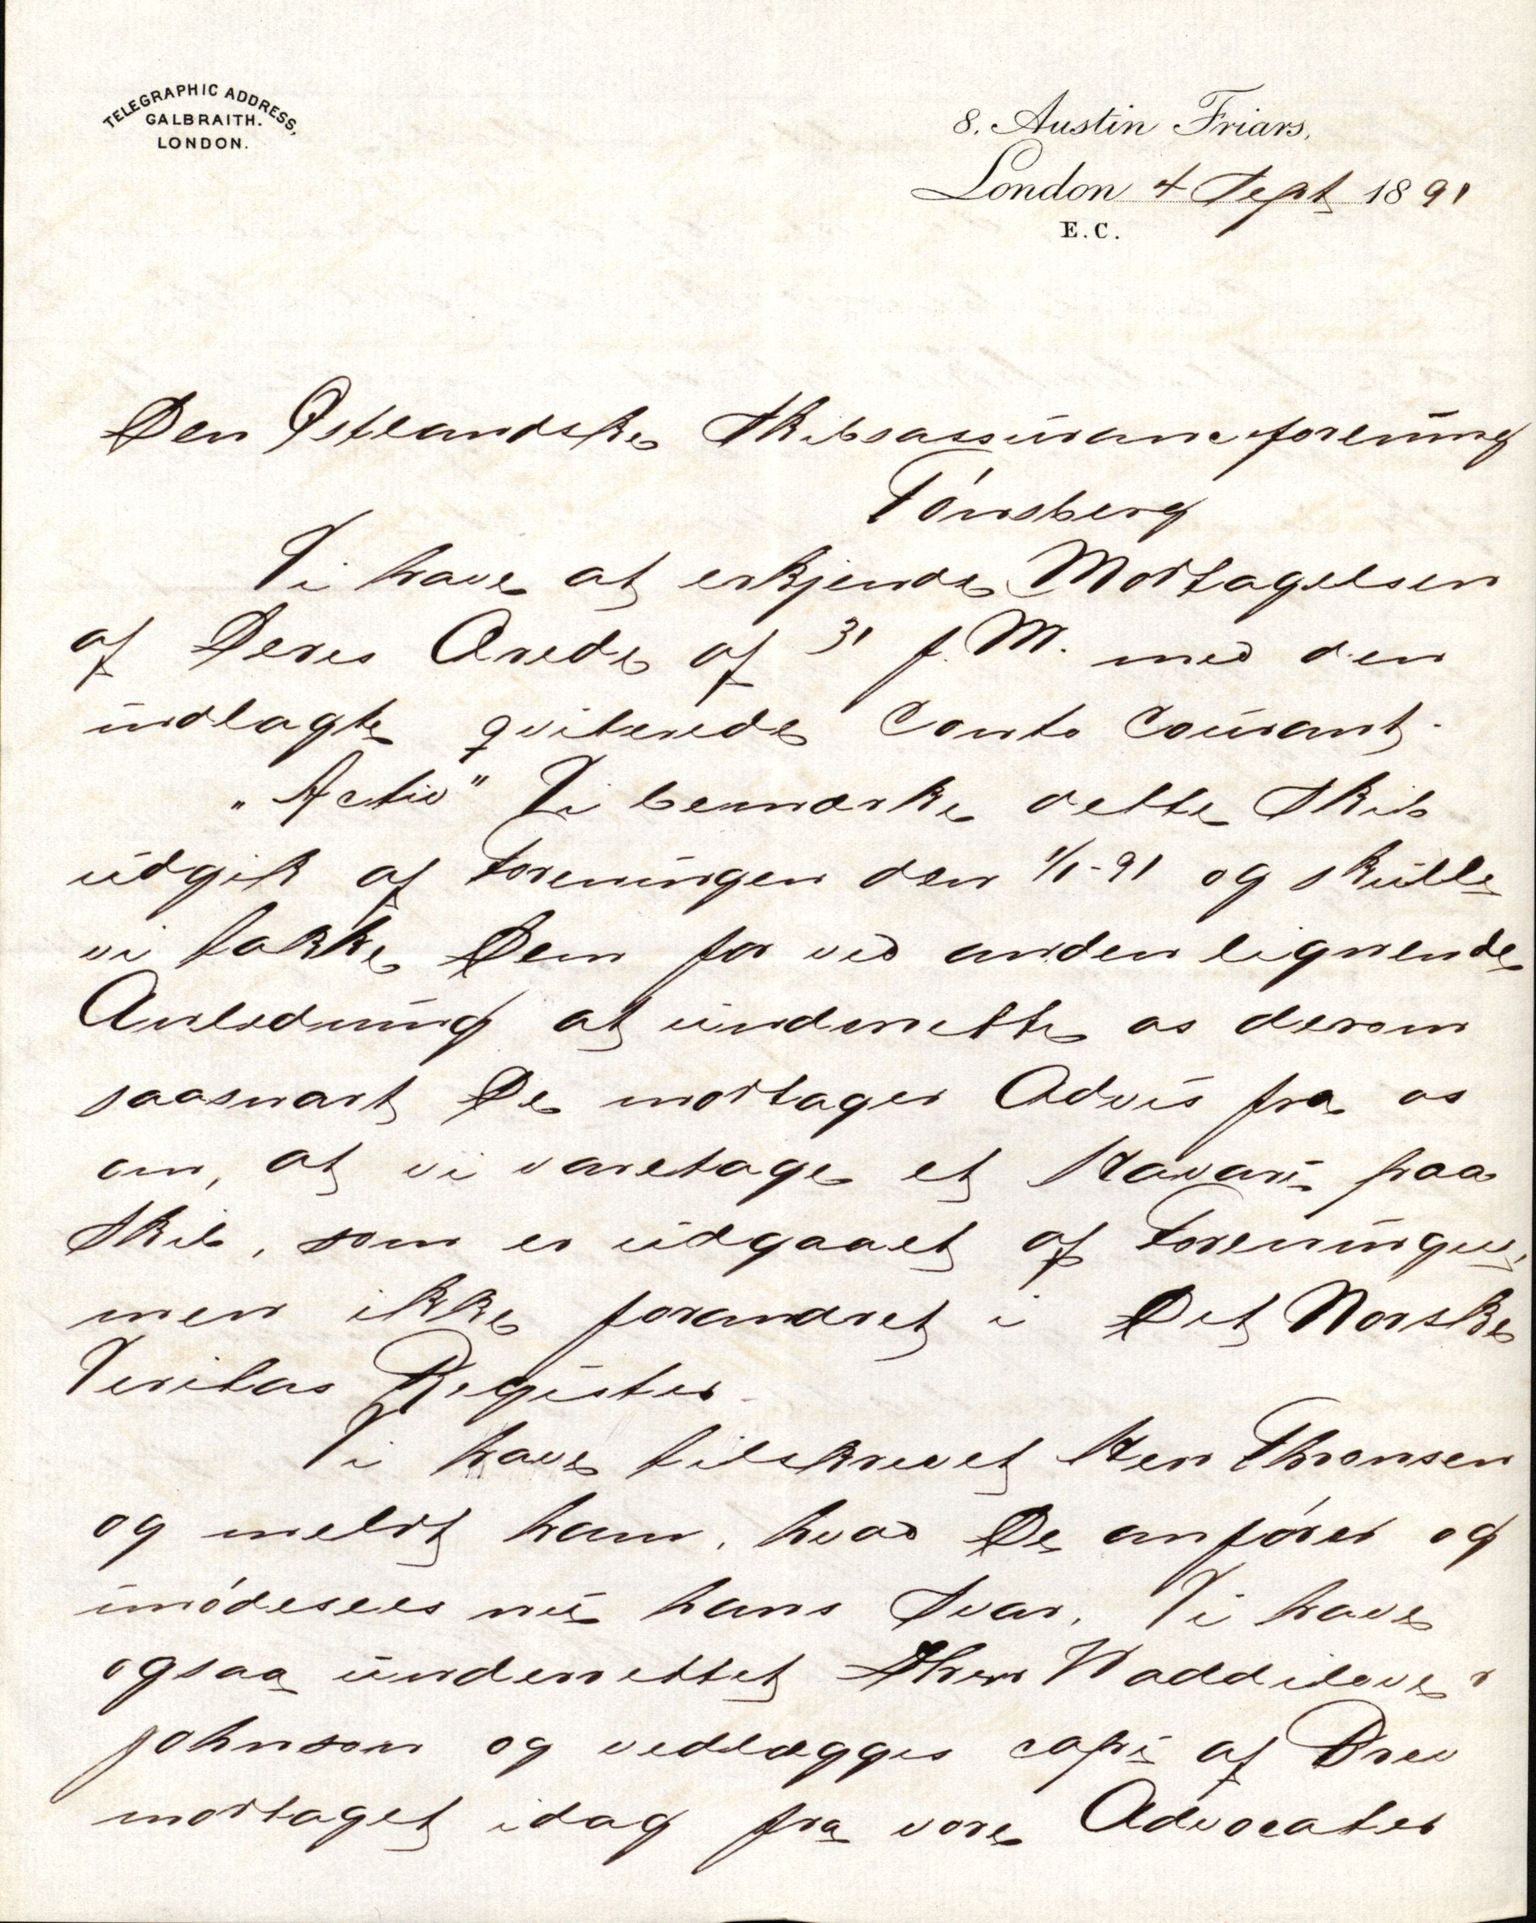 TELEGRAPHIC ADDRESS,
GALBRAITH.
LONDON.
8. Austin Friars,
London 4 Sept 1891
E.C.
Den Østlandske Skibsassuranceforening
Tønsberg
Vi have at erkjende Modtagelsen
af Deres Ærede af 31 f. M. med den
indlagte qviterede Conto Courant.
"Activ" Vi bemærke dette Skib
udgik af Foreningen den 1/1-91 og skulle
vi takke Dem for ved anden lignende
Anledning at underrette os derom
saasnart De modtager Advis fra os
om, at vi varetage et Havari paa
Skib, som er udgaaet af Foreningen,
men ikke forandret i Det Norske
Veritas Register.
Vi have tilskrevet Herr Thronsen
og meldt ham, hvad De anfører og
imødesees nu hans Svar. Vi have
ogsaa underrettet Waddilove &
Johnson og vedlægges copi af Brev
modtaget idag fra vore Advocater